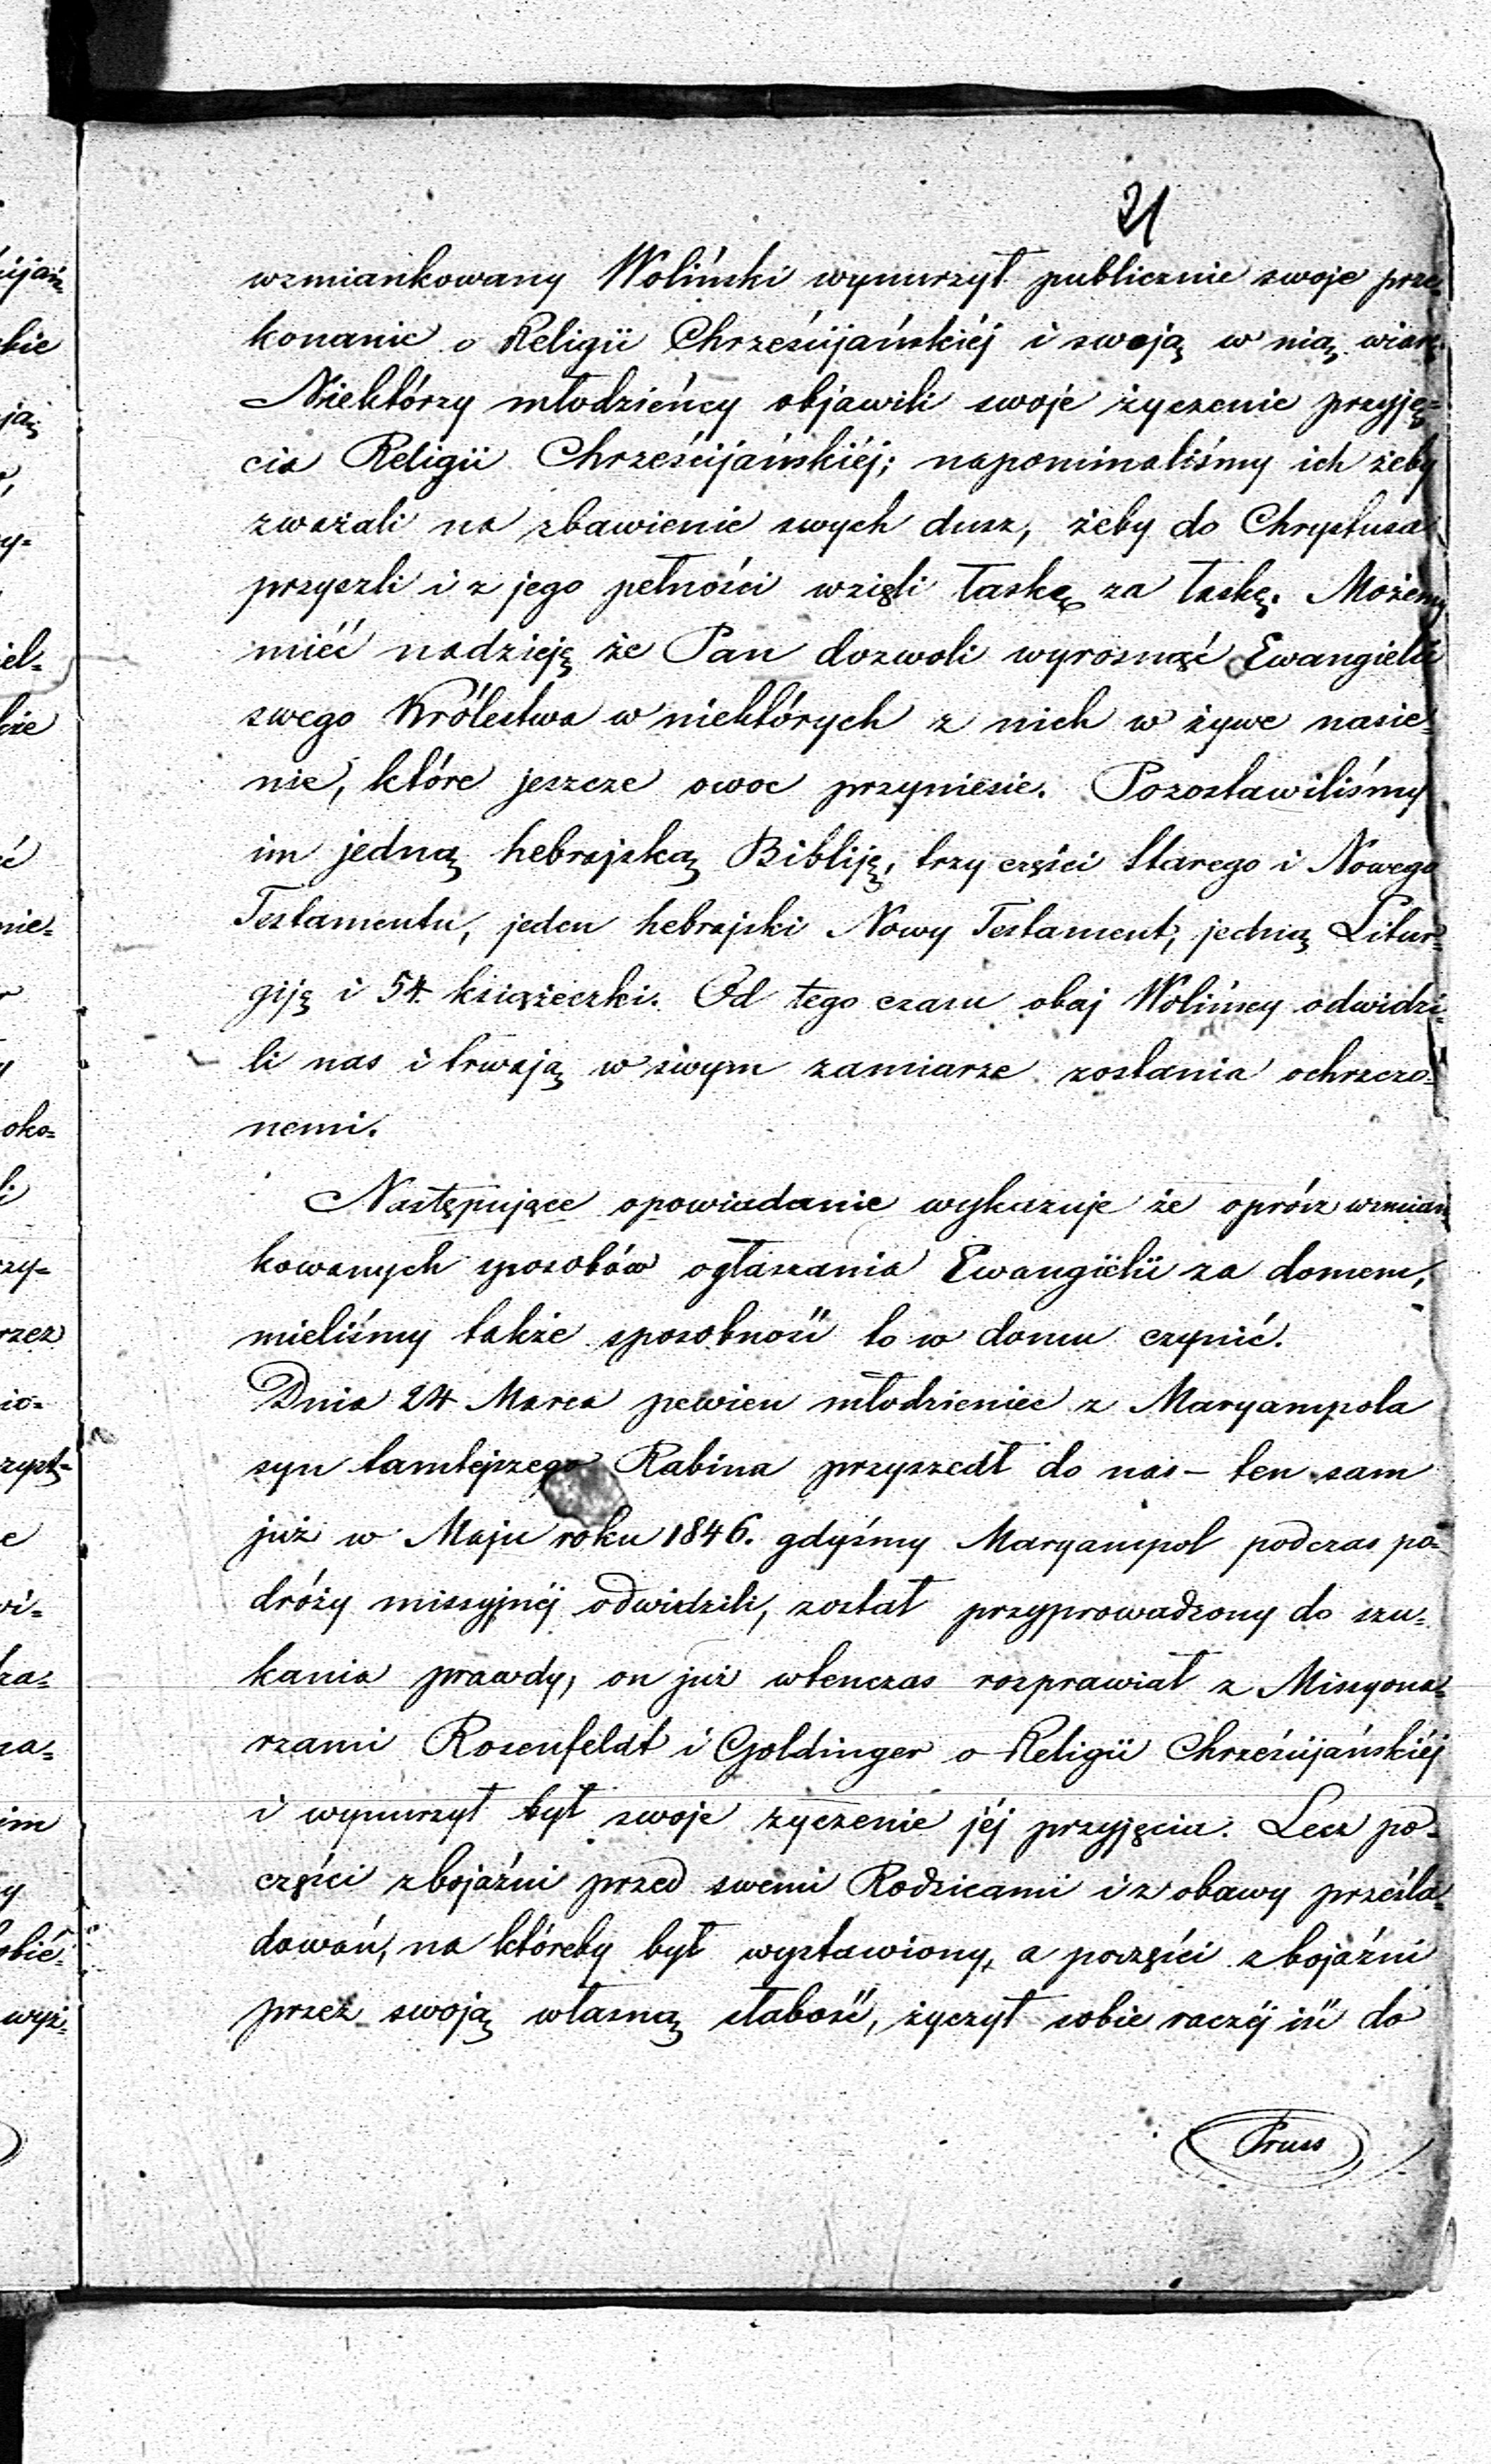 21
wzmiankowany Woliński wynurzył publicznie swoje prze=
konanie o Religii Chrześcijańskiéj i swoją w nią wiarę.
Niektórzy młodzieńcy objawili swoje życzenie przyję=
cia Religii Chrześcijańskiéj; napominaliśmy ich żeby
zważali na zbawienie swych dusz, żeby do Chrystusa
przyszli i z jego pełności wzięli łaskę za łaskę. Możemy
mieć nadzieję że Pan dozwoli wyrosnąć Ewangielii
swego Królestwa w niektórych z nich w żywe nasie=
nie, które jeszcze owoc przyniesie. Pozostawiliśmy
im jedną hebrajską Bibliję, trzy części Starego i Nowego
Testamentu, jeden hebrajski Nowy Testament, jedną Litur=
giję i 54. książeczki. Od tego czasu obaj Wolińscy odwidzi=
li nas i trwają w swym zamiarze zostania ochrzczo=
nemi.
Następujące opowiadanie wykazuje że oprócz wzmian
kowanych sposobów ogłaszania Ewangielii za domem,
mieliśmy także sposobność to w domu czynić.
Dnia 24 Marca pewien młodzieniec z Maryampola
syn tamtejszego Rabina przyszedł do nas – ten sam
już w Maju roku 1846. gdyśmy Maryampol podczas po=
dróży missyjnéj odwidzili, został przyprowadzony do szu=
kania prawdy, on już wtenczas rozprawiał z Missyona=
rzami Rosenfeldt i Goldinger o Religii Chrześcijańskiéj
i wynurzył był swoje życzenie jéj przyjęcia. Lecz po=
części z bojaźni przed swemi Rodzicami i z obawy prześla=
dowań, na któreby był wystawiony, a poczęści z bojaźni
przez swoją własną słabość, życzył sobie raczéj iść do
Pruss